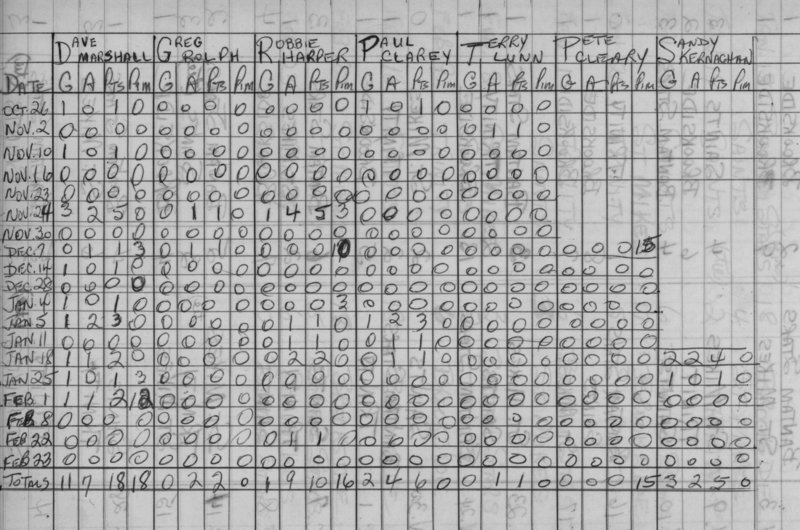 DAVE MARSHALL GREG ROLPH ROBBIE HARPER PAUL CLAREY TERRY LUNN PETE CLEARY SANDY KERNAGHAN
DATE G A Pts Pim G A Pts Pim G A Pts Pim G A Pts Pim G A Pts Pim G A Pts Pim G A Pts Pim
OCT. 26 1 0 1 0 0 0 0 0 0 0 0 0 1 0 1 0 0 0 0 0
NOV. 2 0 0 0 0 0 0 0 0 0 0 0 0 0 0 0 0 0 1 1 0
NOV. 10 1 0 1 0 0 0 0 0 0 0 0 0 0 0 0 0 0 0 0 0
NOV. 16 0 0 0 0 0 0 0 0 0 0 0 0 0 0 0 0 0 0 0 0
NOV. 23 0 0 0 0 0 0 0 0 0 0 0 0 0 0 0 0 0 0 0 0
NOV. 24 3 2 5 0 0 1 1 0 1 4 5 3 0 0 0 0 0 0 0 0
NOV. 30 0 0 0 0 0 0 0 0 0 0 0 0 0 0 0 0 0 0 0 0
DEC. 7 0 1 1 3 0 1 1 0 0 0 0 10 0 0 0 0 0 0 0 0 0 0 0 15
DEC. 14 1 0 1 0 0 0 0 0 0 0 0 0 0 0 0 0 0 0 0 0 0 0 0 0
DEC. 28 0 0 0 0 0 0 0 0 0 0 0 0 0 0 0 0 0 0 0 0 0 0 0 0
JAN. 4 1 0 1 0 0 0 0 0 0 0 0 3 0 0 0 0 0 0 0 0 0 0 0 0
JAN. 5 1 2 3 0 0 0 0 0 0 1 1 0 1 2 3 0 0 0 0 0 0 0 0 0
JAN. 11 0 0 0 0 0 0 0 0 0 1 1 0 0 1 1 0 0 0 0 0 0 0 0 0
JAN. 18 1 1 2 0 0 0 0 0 0 2 2 0 0 1 1 0 0 0 0 0 0 0 0 0 2 2 4 0
JAN. 25 1 0 1 3 0 0 0 0 0 0 0 0 0 0 0 0 0 0 0 0 0 0 0 0 1 0 1 0
FEB. 1 1 1 2 12 0 0 0 0 0 0 0 0 0 0 0 0 0 0 0 0 0 0 0 0 0 0 0 0
FEB. 8 0 0 0 0 0 0 0 0 0 0 0 0 0 0 0 0 0 0 0 0 0 0 0 0 0 0 0 0
FEB. 22 0 0 0 0 0 0 0 0 0 1 1 0 0 0 0 0 0 0 0 0 0 0 0 0 0 0 0 0
FEB. 23 0 0 0 0 0 0 0 0 0 0 0 0 0 0 0 0 0 0 0 0 0 0 0 0 0 0 0 0
TOTALS 11 7 18 18 0 2 2 0 1 9 10 16 2 4 6 0 0 1 1 0 0 0 0 15 3 2 5 0